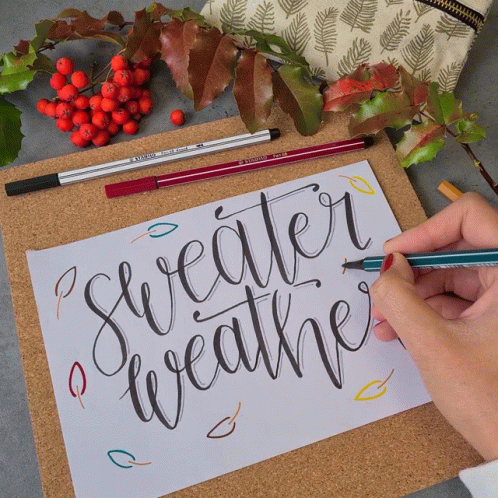 sweater
weather
STABILO
STABILO